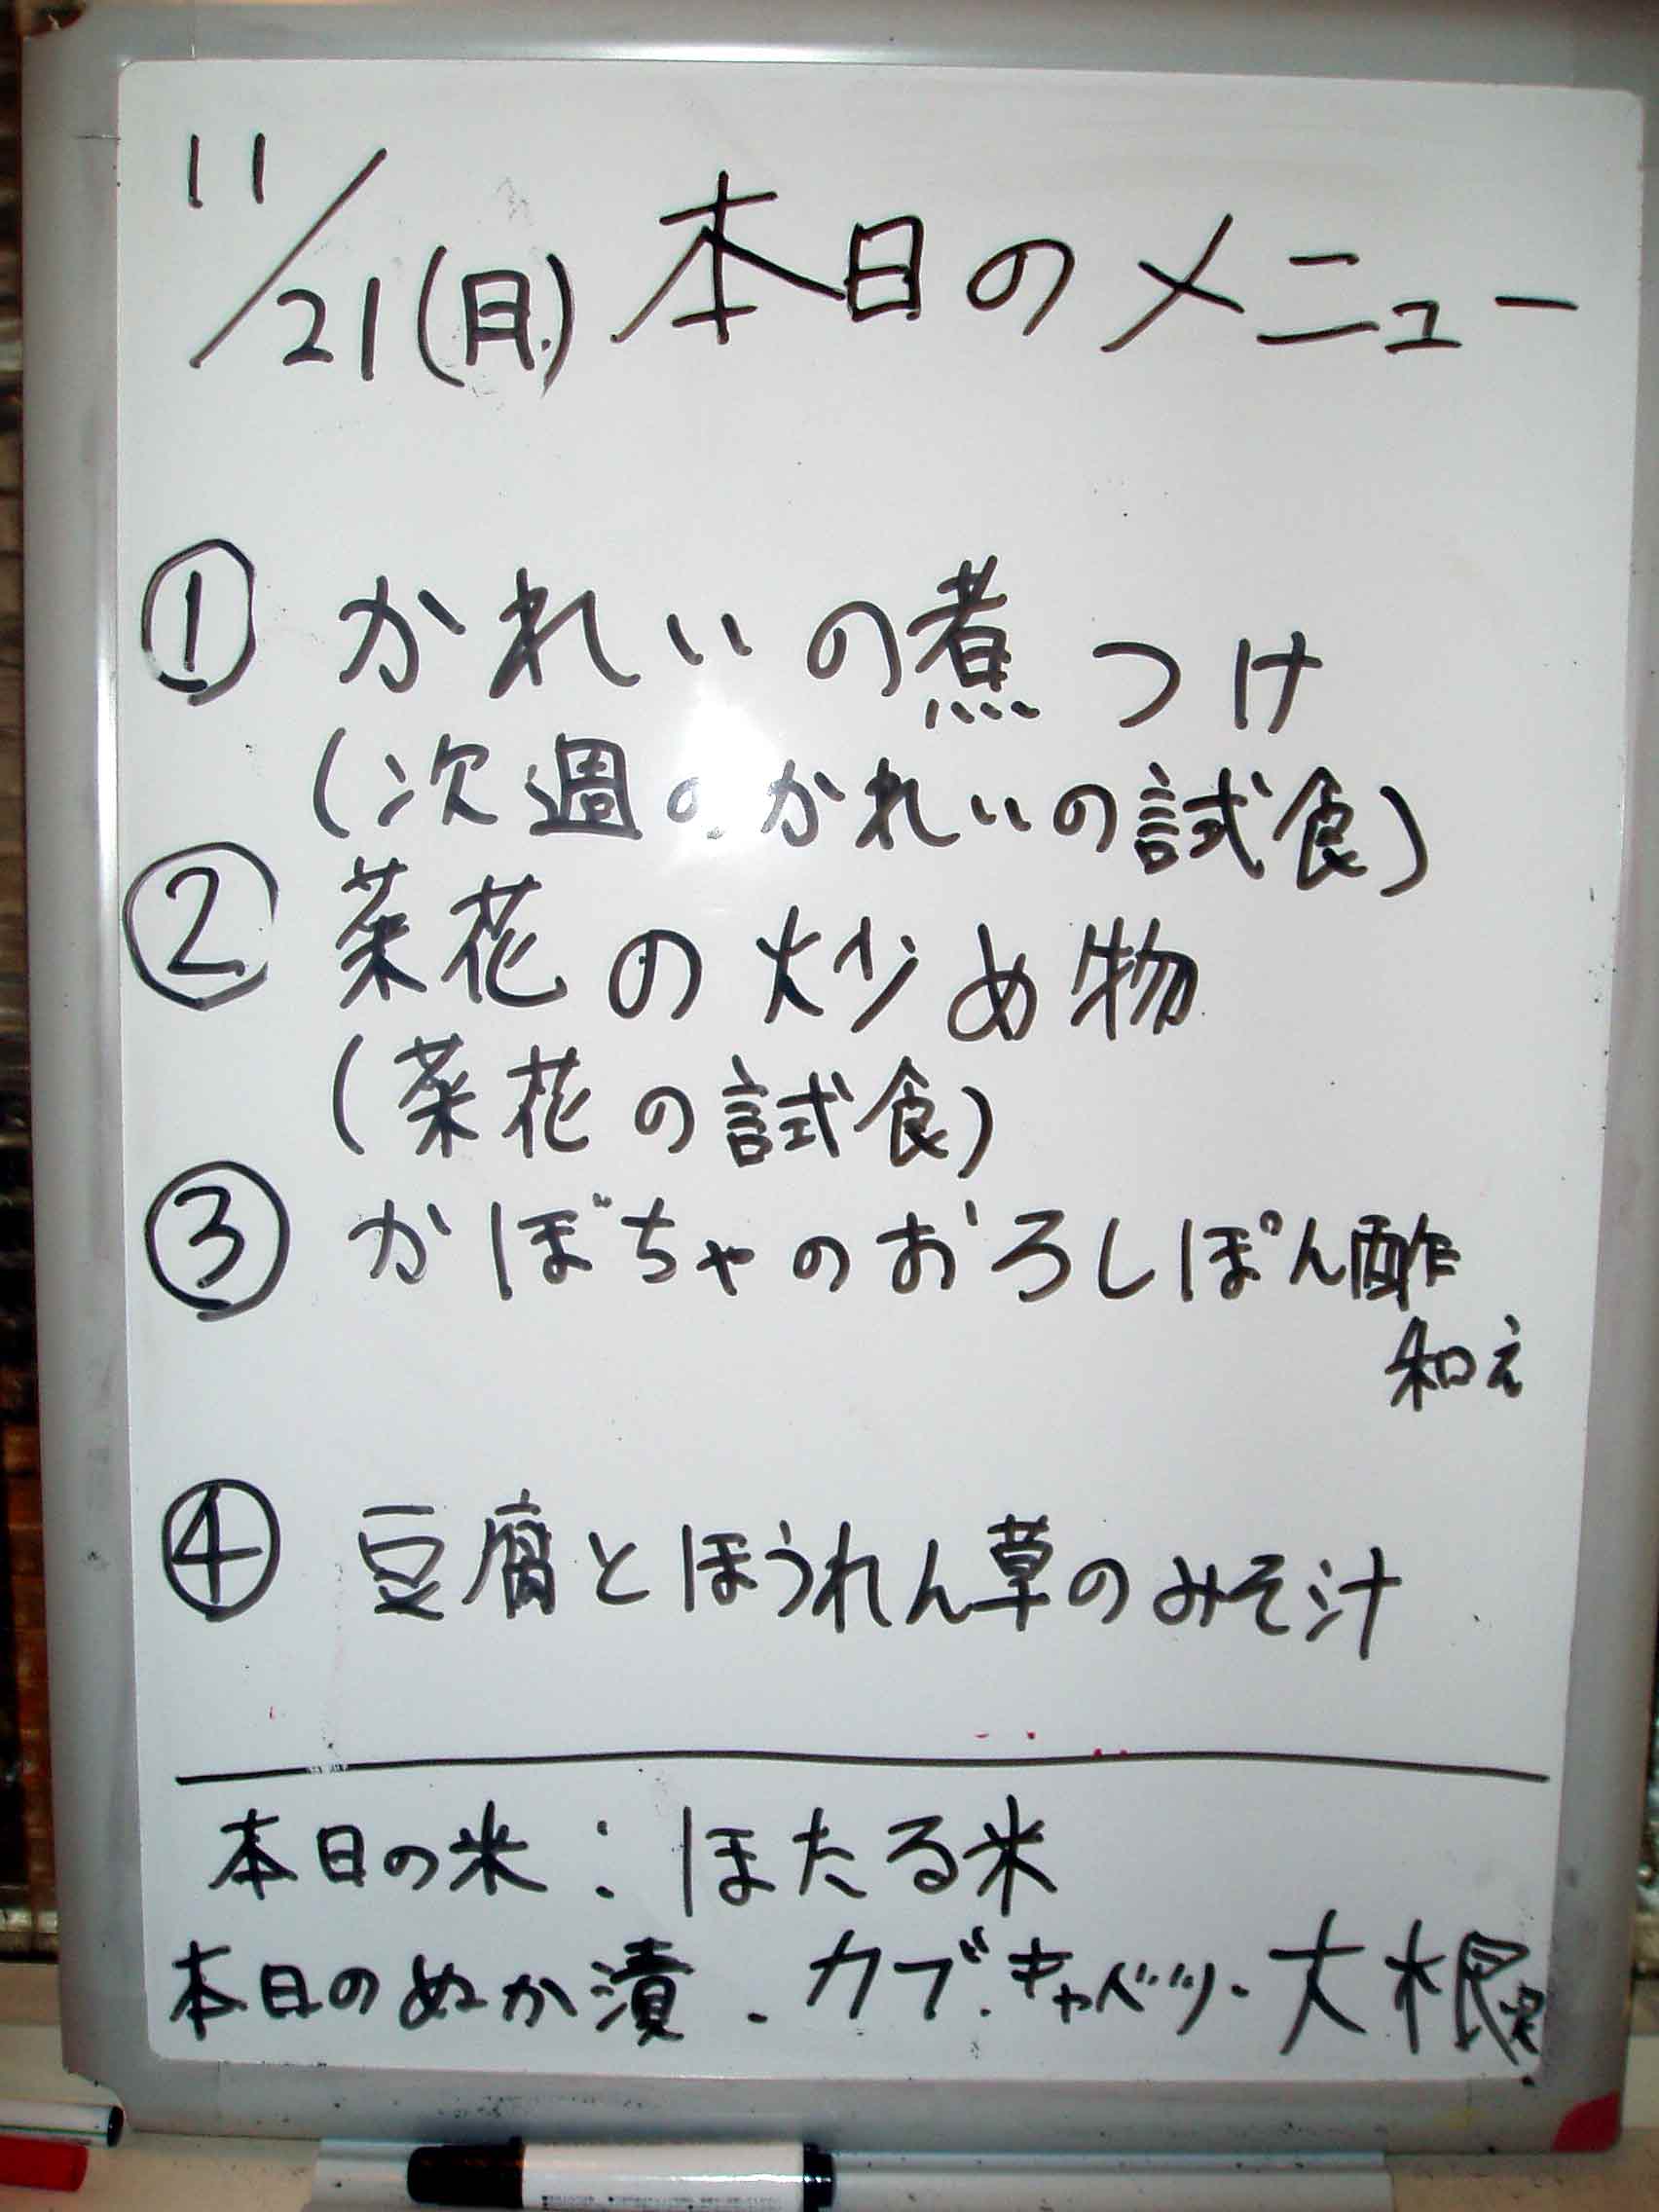 11/21(月) 本日のメニュー
① かれいの煮つけ
(次週のかれいの試食)
② 菜花の炒め物
(菜花の試食)
③ かぼちゃのおろしぽん酢
和え
④ 豆腐とほうれん草のみそ汁
本日の米:ほたる米
本日のぬか漬.カブ.キャベツ.大根